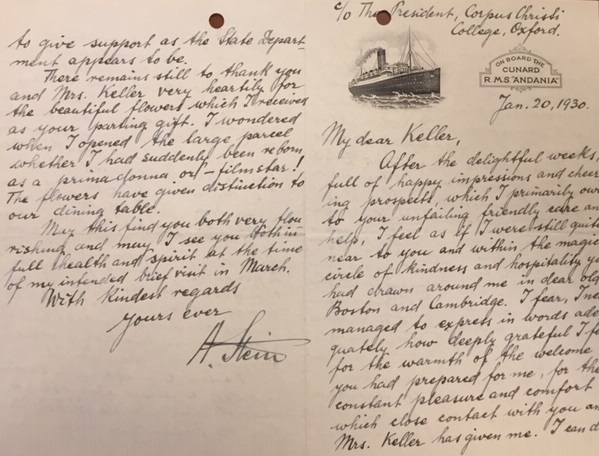 to give support as the State Depart-
ment appears to be.
There remains still to thank you
and Mrs. Keller very heartily for
the beautiful flowers which I received
as your parting gift. I wondered
when I opened the large parcel
whether I had suddenly been reborn
as a primadonna or - filmstar!
The flowers have given distinction to
our dining table.
May this find you both very flou
rishing and may I see you both in
full health and spirit at the time
of my intended brief visit in March.
With kindest regards
Yours ever
A. Stein
c/o The President, Corpus Christi
College, Oxford.
ON BOARD THE
CUNARD
R.M.S. "ANDANIA"
Jan. 20, 1930.
My dear Keller,
After the delightful weeks,
full of happy impressions and cheer
ing prospects, which I primarily ow
to your unfailing friendly care an
help, I feel as if I were still quit
near to you and within the magic
circle of kindness and hospitality y
had drawn around me in dear old
Boston and Cambridge. I fear, I ne
managed to express in words ade
quately how deeply grateful I f
for the warmth of the welcome
you had prepared for me, for the
constant pleasure and comfort
which close contact with you an
Mrs. Keller has given me. I can d